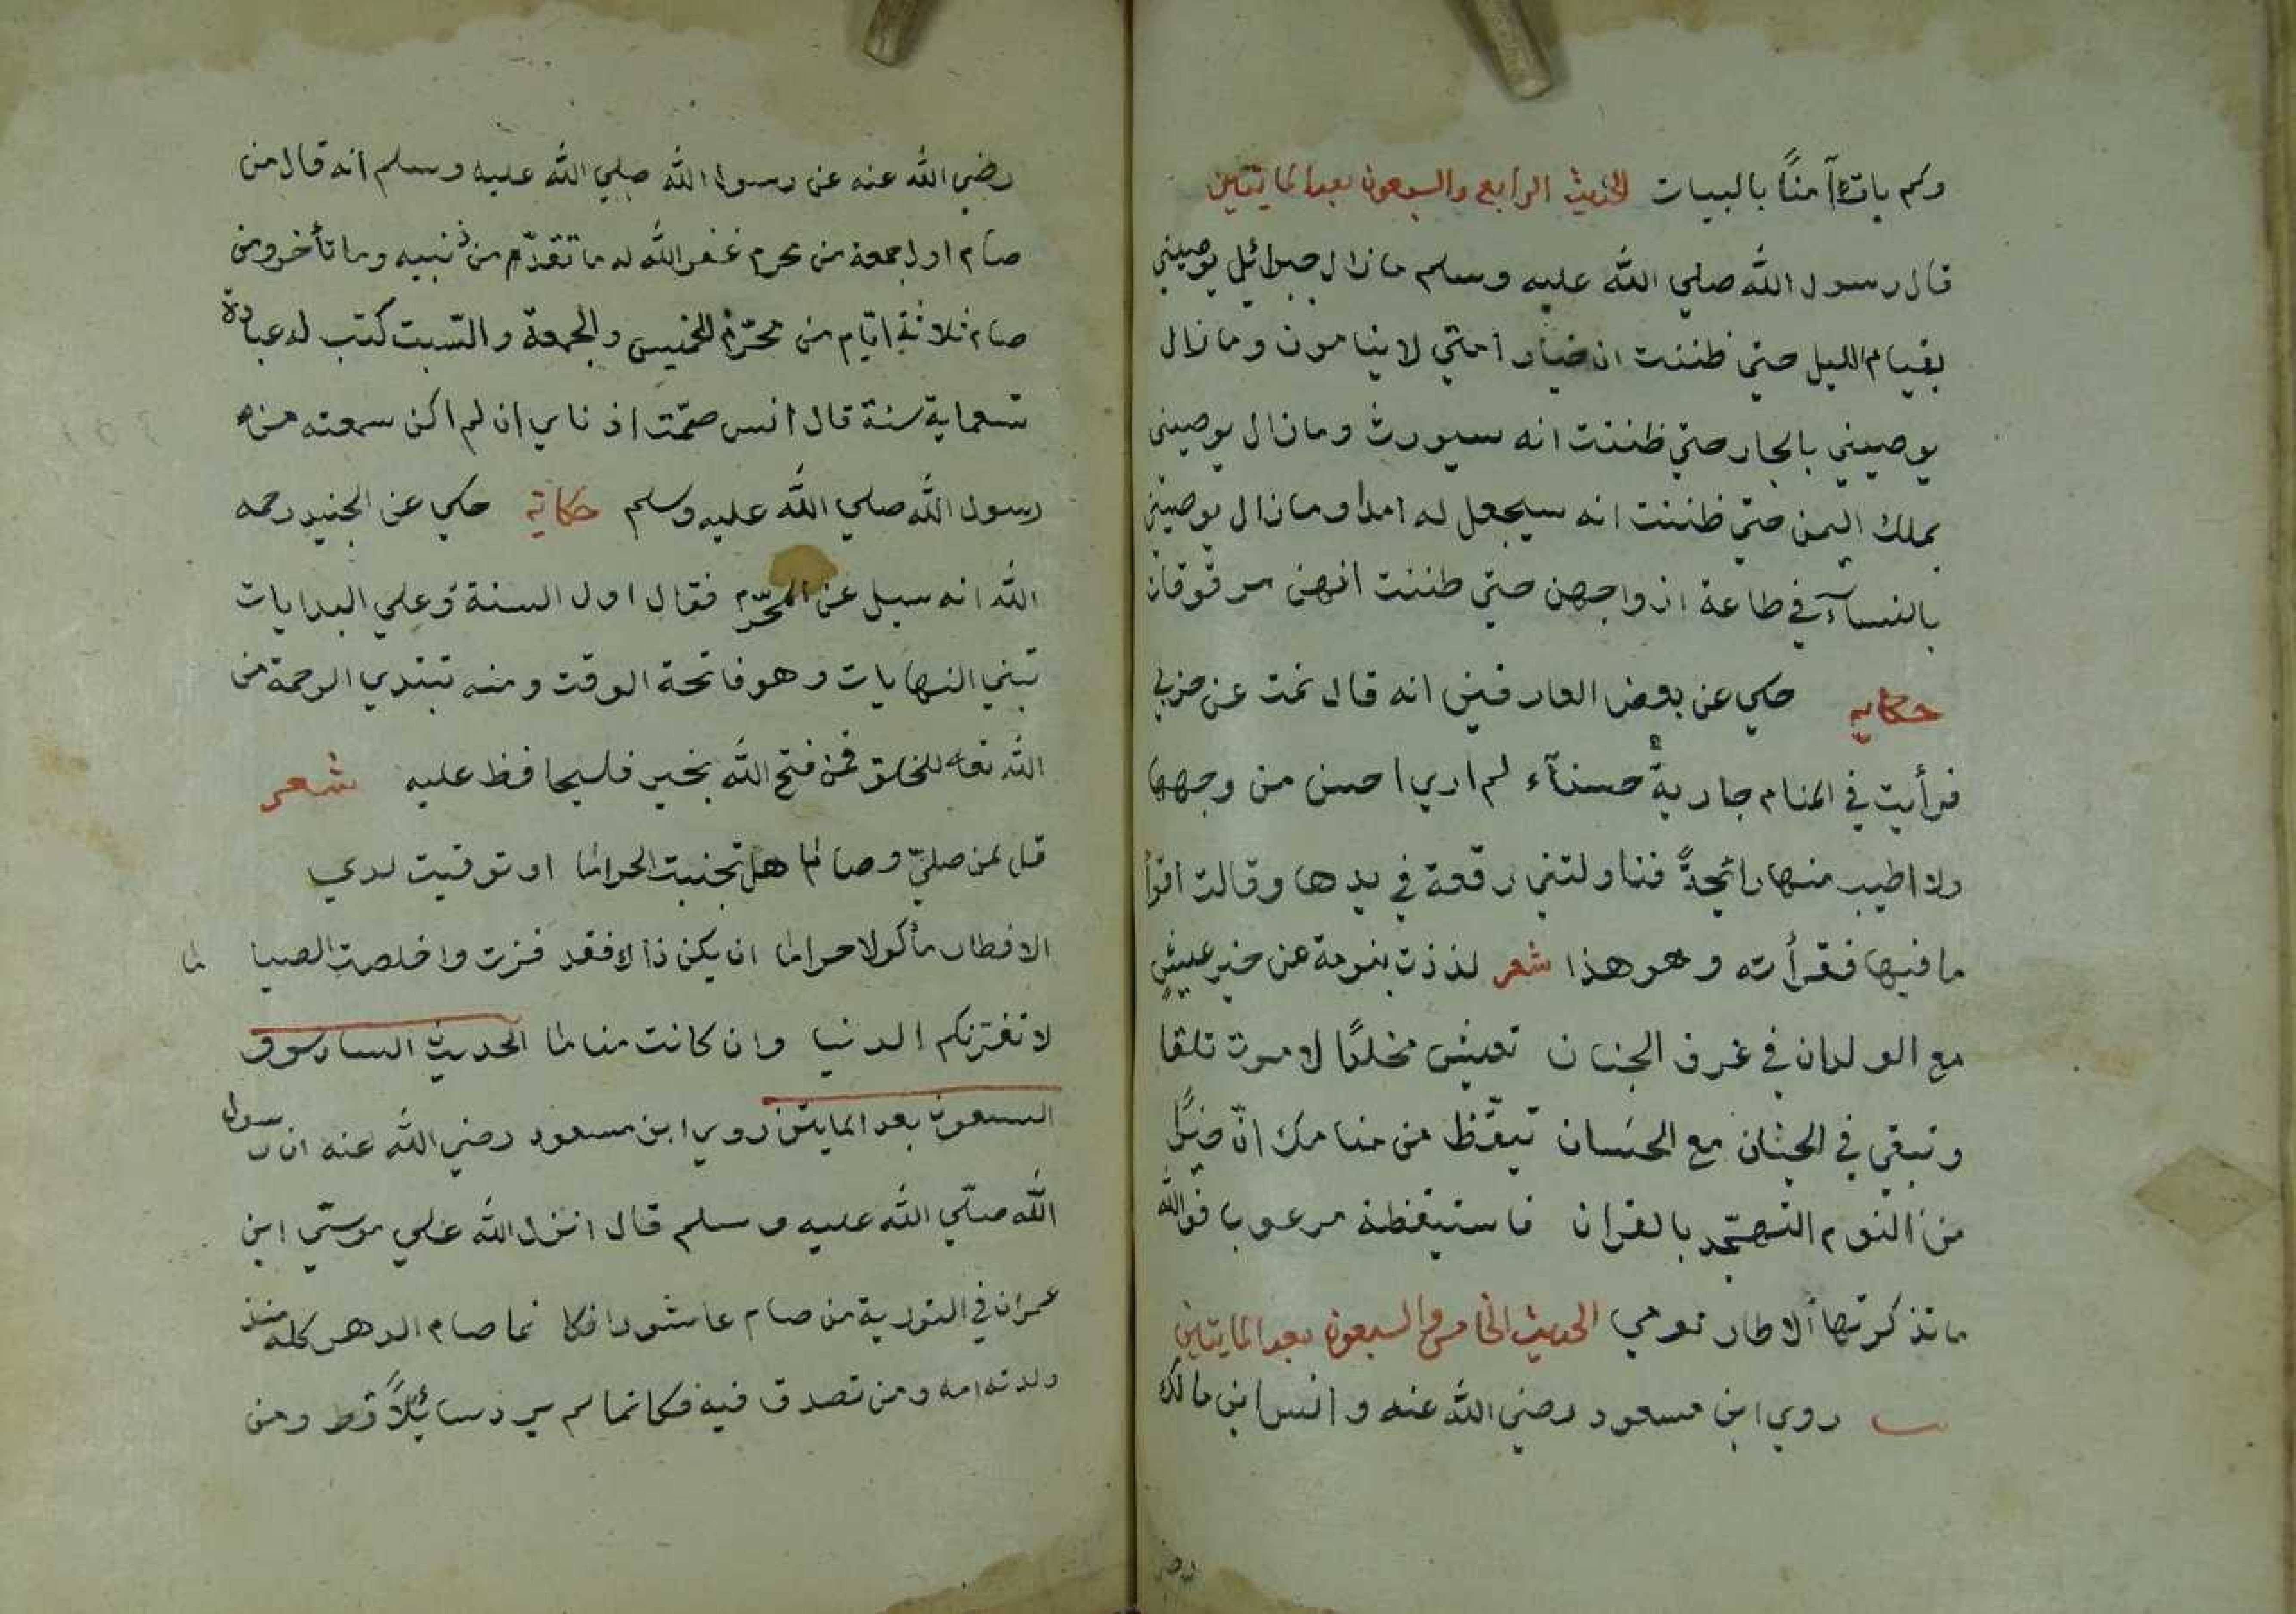 وكم بات آمناً بالبيات الحديث الرابع والسبعون بعد المايتين
قال رسول الله صلي الله عليه وسلم ما زال جبرائيل يوصيني
بقيام الليل حتي ظننت ان خيار امتي لا ينامون وما زال
يوصيني بالجار حتي ظننت انه سيورث وما زال يوصيني
بملك اليمن حتي ظننت انه سيجعل له امدا وما زال يوصيني
بالنسآء في طاعة ازواجهن حتي ظننت انهن مرقوقات
حكايه حكي عن بعض العارفين انه قال نمت عن حزبي
فرأيت في المنام جارية حسنآء لم اري احسن من وجهها
ولا اطيب منها رائحةً فناولتني رقعة في يدها وقالت اقرا
ما فيها فقرأته وهو هذا شعر لذذت بنومة عن خير عيشٍ
مع الولدان في غرف الجنان تعيش مخلدًا لا موت تلقا
وتبقي في الجنان مع الحسان تيقّظ من منامك انّ خيرًا
من النوم التهجّد بالقران فاستيقظة مرعوبا فوالله
ما تذكرتها الا طار نومي الحديث الخامس والسبعون بعد المايتين
روي ابن مسعود رضي الله عنه وانس ابن مالك
رضي
رضي الله عنه عن رسول الله صلي الله عليه وسلم انه قال من
صام اول جمعة من محرم غفر الله له ما تقدّم من ذنبيه وما تأخر ومن
صام ثلاثة ايّام من محرّم الخميس والجمعة والسّبت كتب له عبادة
تسعماية سنة قال انس صمّت اذناي ان لم اكن سمعته من
رسول الله صلي الله عليه وسلم حكاية حكي عن الجنيد رحمه
الله انه سيل عن المحرّم فقال اول السنة وعلي البدايات
تبني النهايات وهو فاتحة الوقت ومنه تبتدي الرحمة من
الله تعه للخلق فمن فتح الله بخير فليحافظ عليه شعر
قل لمن صليّ وصاما هل تجنبت الحراما او توقيت لدي
الافطار مأكولا حراما ان يكن ذاك فقد فزت واخلصت الصيا ما
لا تغترنكم الدنيا وان كانت مناما الحديث السادس و
السبعون بعد المايتين روي ابن مسعود رضي الله عنه ان رسول
الله صلّي الله عليه وسلم قال انزل الله علي موسي ابن
عمران في التورية من صام عاشورا فكانما صام الدهر كله منذ
ولدته امه ومن تصدق فيه فكانما لم يرد سائلًا قط ومن